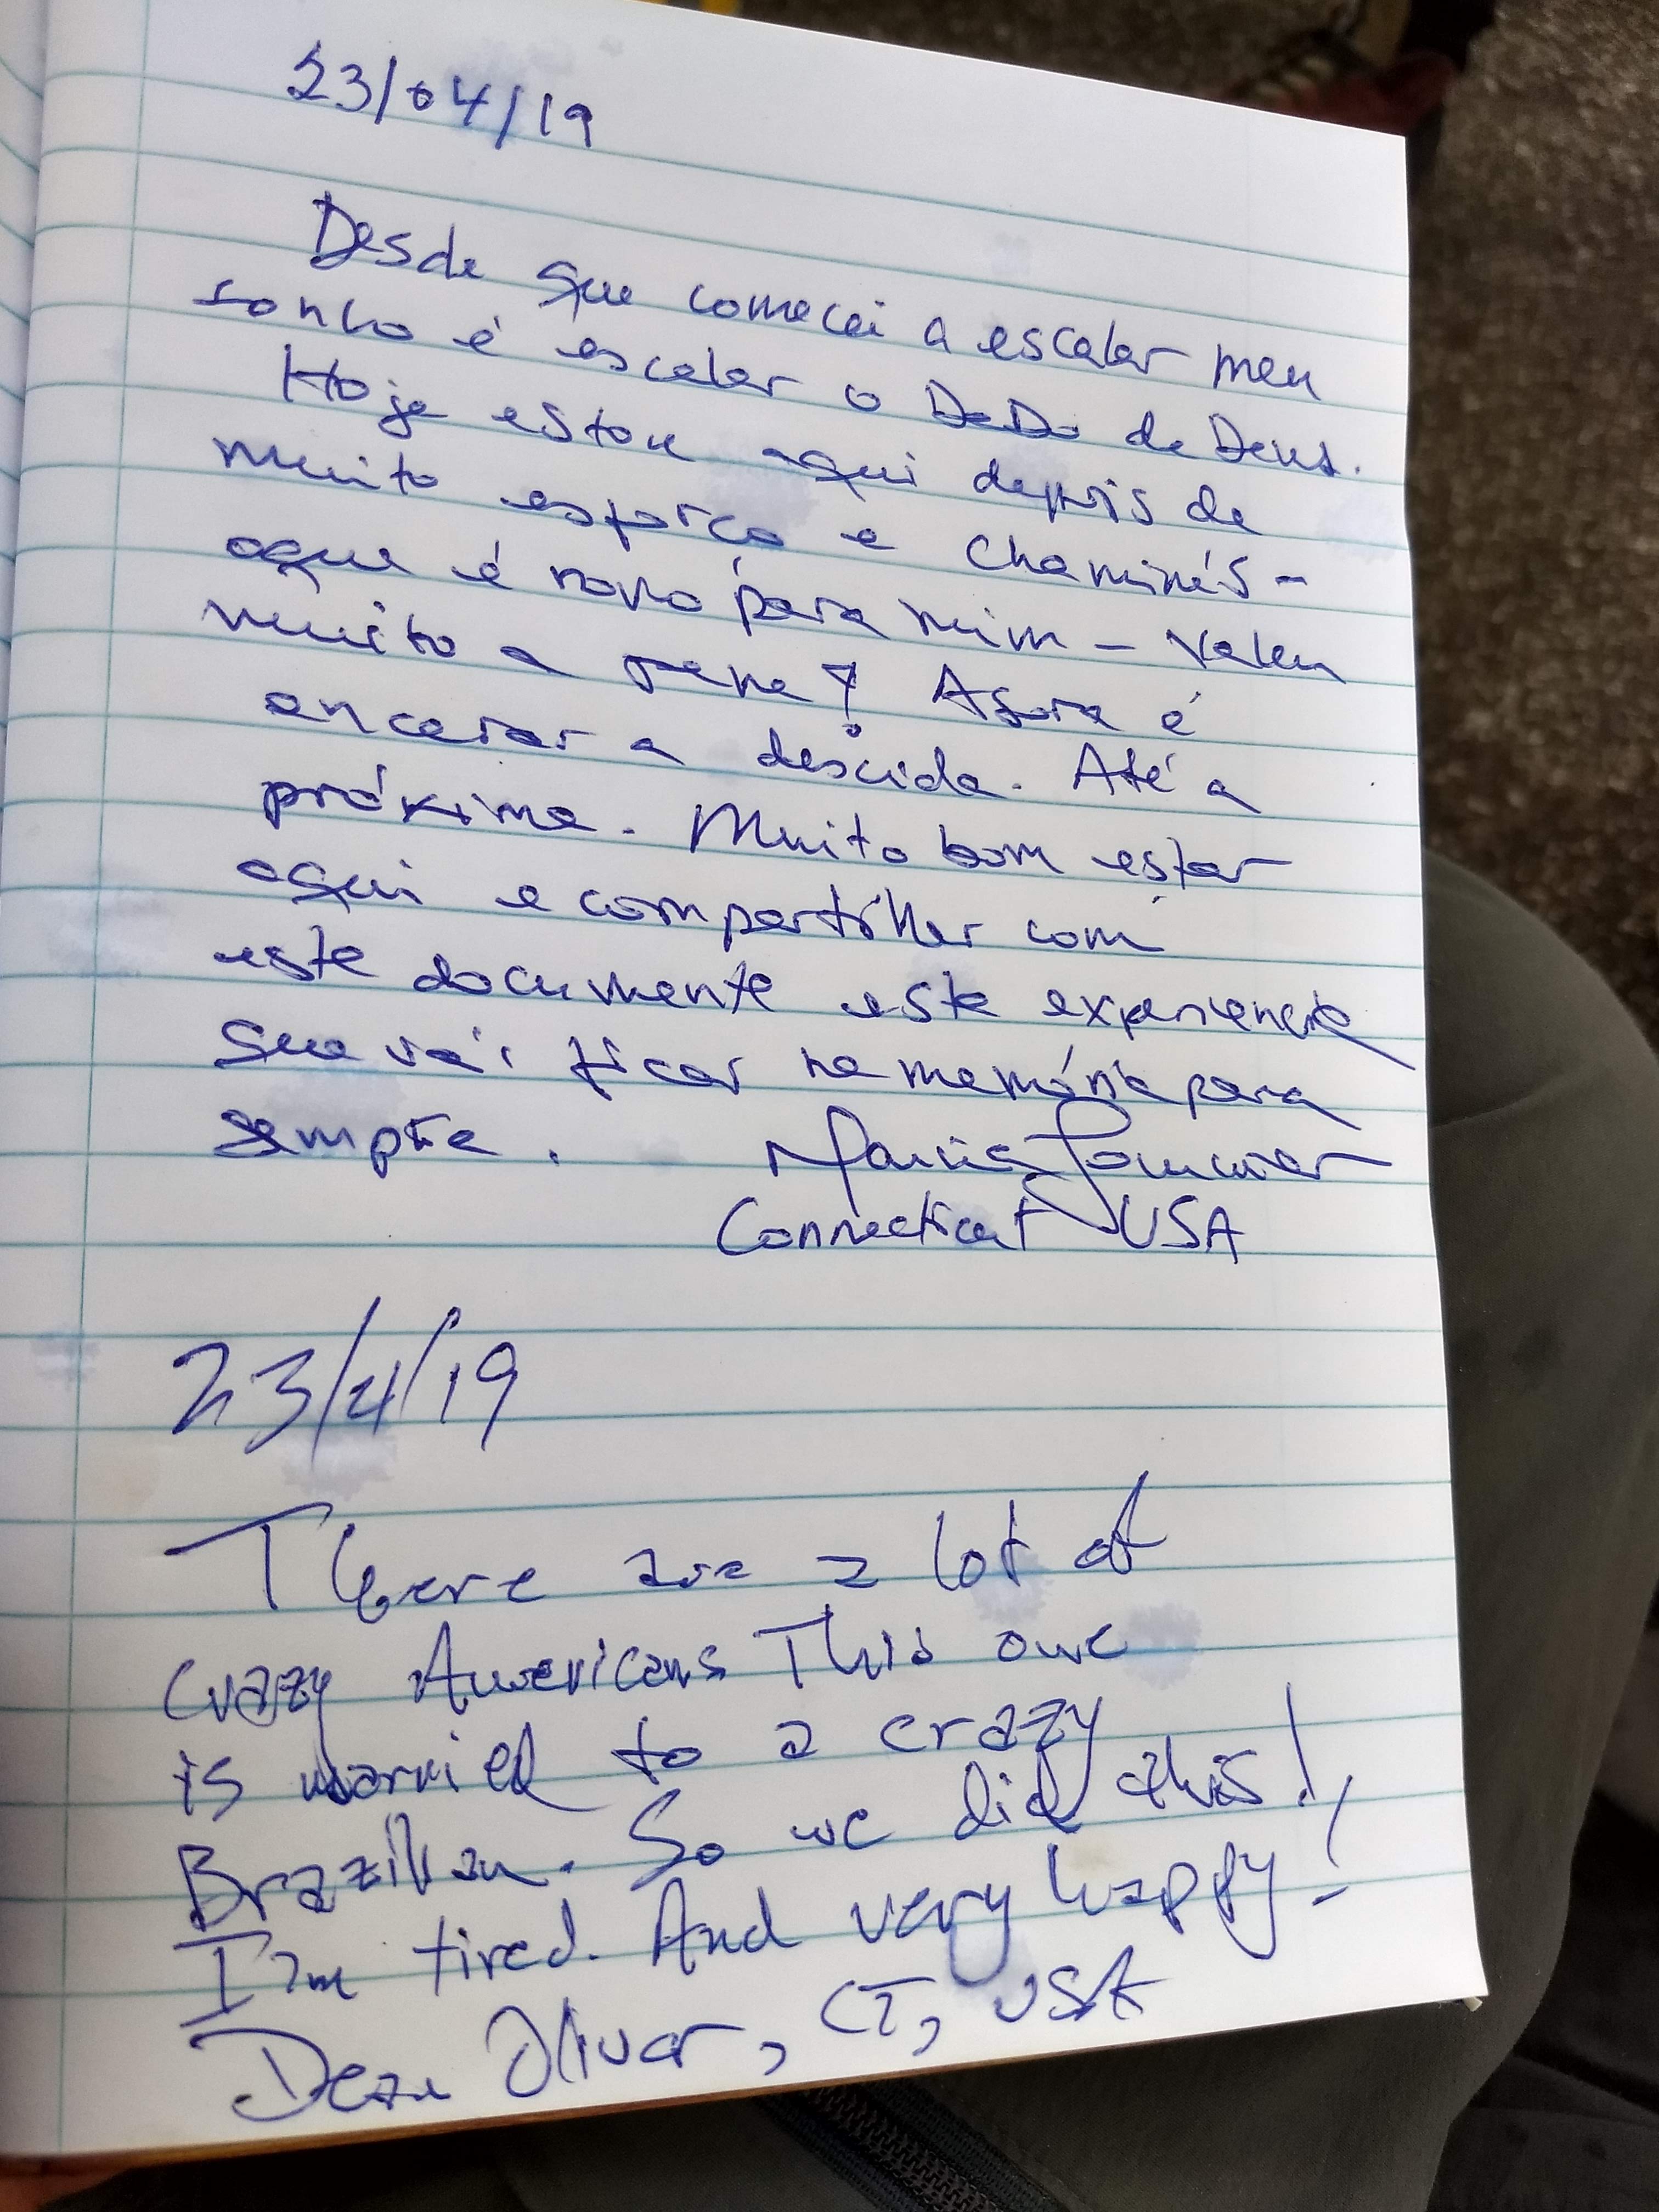 23/04/19
Desde que comecei a escalar meu
sonho é escalar o DeDo de Deus.
Hoje estou aqui depois de
muito esforço e chaminés -
oque é novo para mim - Valeu
muito a pena! Agora é
encerar a descida. Até a
próxima. Muito bom estar
aqui e compartilhar com
este documente esta experiencia
que vai ficar na memória para
sempre.
Connecticut USA
23/4/19
There are a lot of
crazy Americans This one
is married to a crazy
Brazilian. So we did this!
I'm tired. And very happy!
Oliver, CT, USA